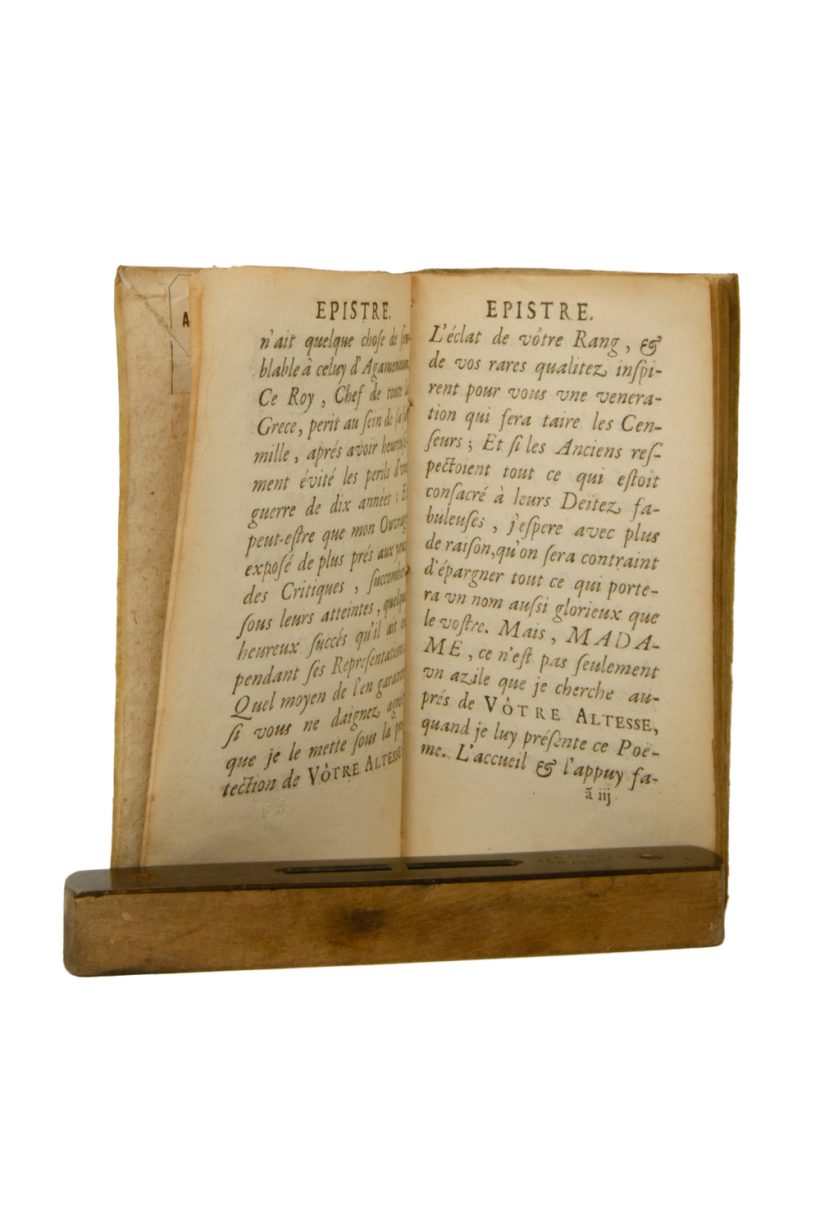 A
EPISTRE.
n'ait quelque choſe de ſem-
blable à celuy d'Agamemnon
Ce Roy, Chef de toute la
Grece, perit au ſein de ſa
mille, aprés avoir heureuſe-
ment évité les perils d'une
guerre de dix années; Et
peut-eſtre que mon Ouvrage
expoſé de plus prés aux yeux
des Critiques, ſuccombe
ſous leurs atteintes, quelque
heureux ſuccés qu'il ait
pendant ſes Repreſentations.
Quel moyen de l'en garantir
ſi vous ne daignez
que je le mette ſous la
tection de VÔTRE ALTESSE
EPISTRE.
L'éclat de vôtre Rang, &
de vos rares qualitez inſpi-
rent pour vous vne venera-
tion qui ſera taire les Cen-
ſeurs; Et ſi les Anciens reſ-
pectoient tout ce qui eſtoit
conſacré à leurs Deïtez fa-
buleuſes, j'eſpere avec plus
de raiſon, qu'on ſera contraint
d'épargner tout ce qui porte-
ra vn nom auſſi glorieux que
le voſtre. Mais, MADA-
ME, ce n'eſt pas ſeulement
vn azile que je cherche au-
prés de VÔTRE ALTESSE,
quand je luy préſente ce Poë-
me. L'accueil & l'appuy fa-
ã iij